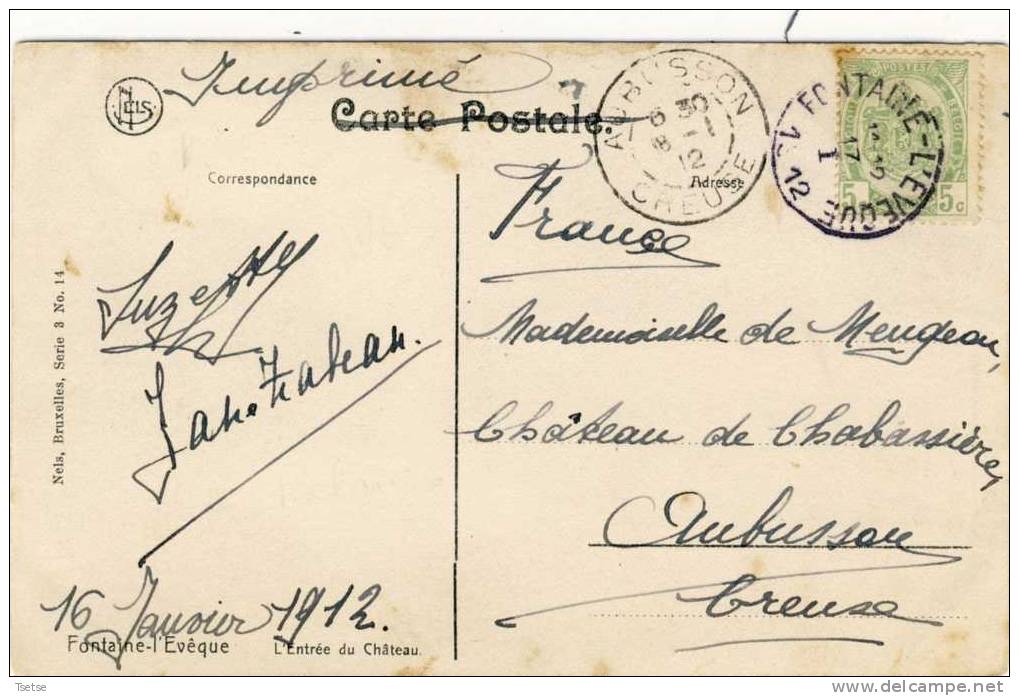 Imprimé
NELS
Carte Postale.
AUBUSSON
6 30
8 -1
12
CREUSE
FONTAINE-L'EVEQUE
17 I
12
POSTES
5c 5c
Correspondance
Adresse
France
Suzette
Mademoiselle de
Château de Chabassière,
Aubusson
Creuse
16 Janvier 1912.
Nels, Bruxelles, Serie 3 No. 14
Fontaine-l'Evêque L'Entrée du Château.
Tsetse
www.delcampe.net